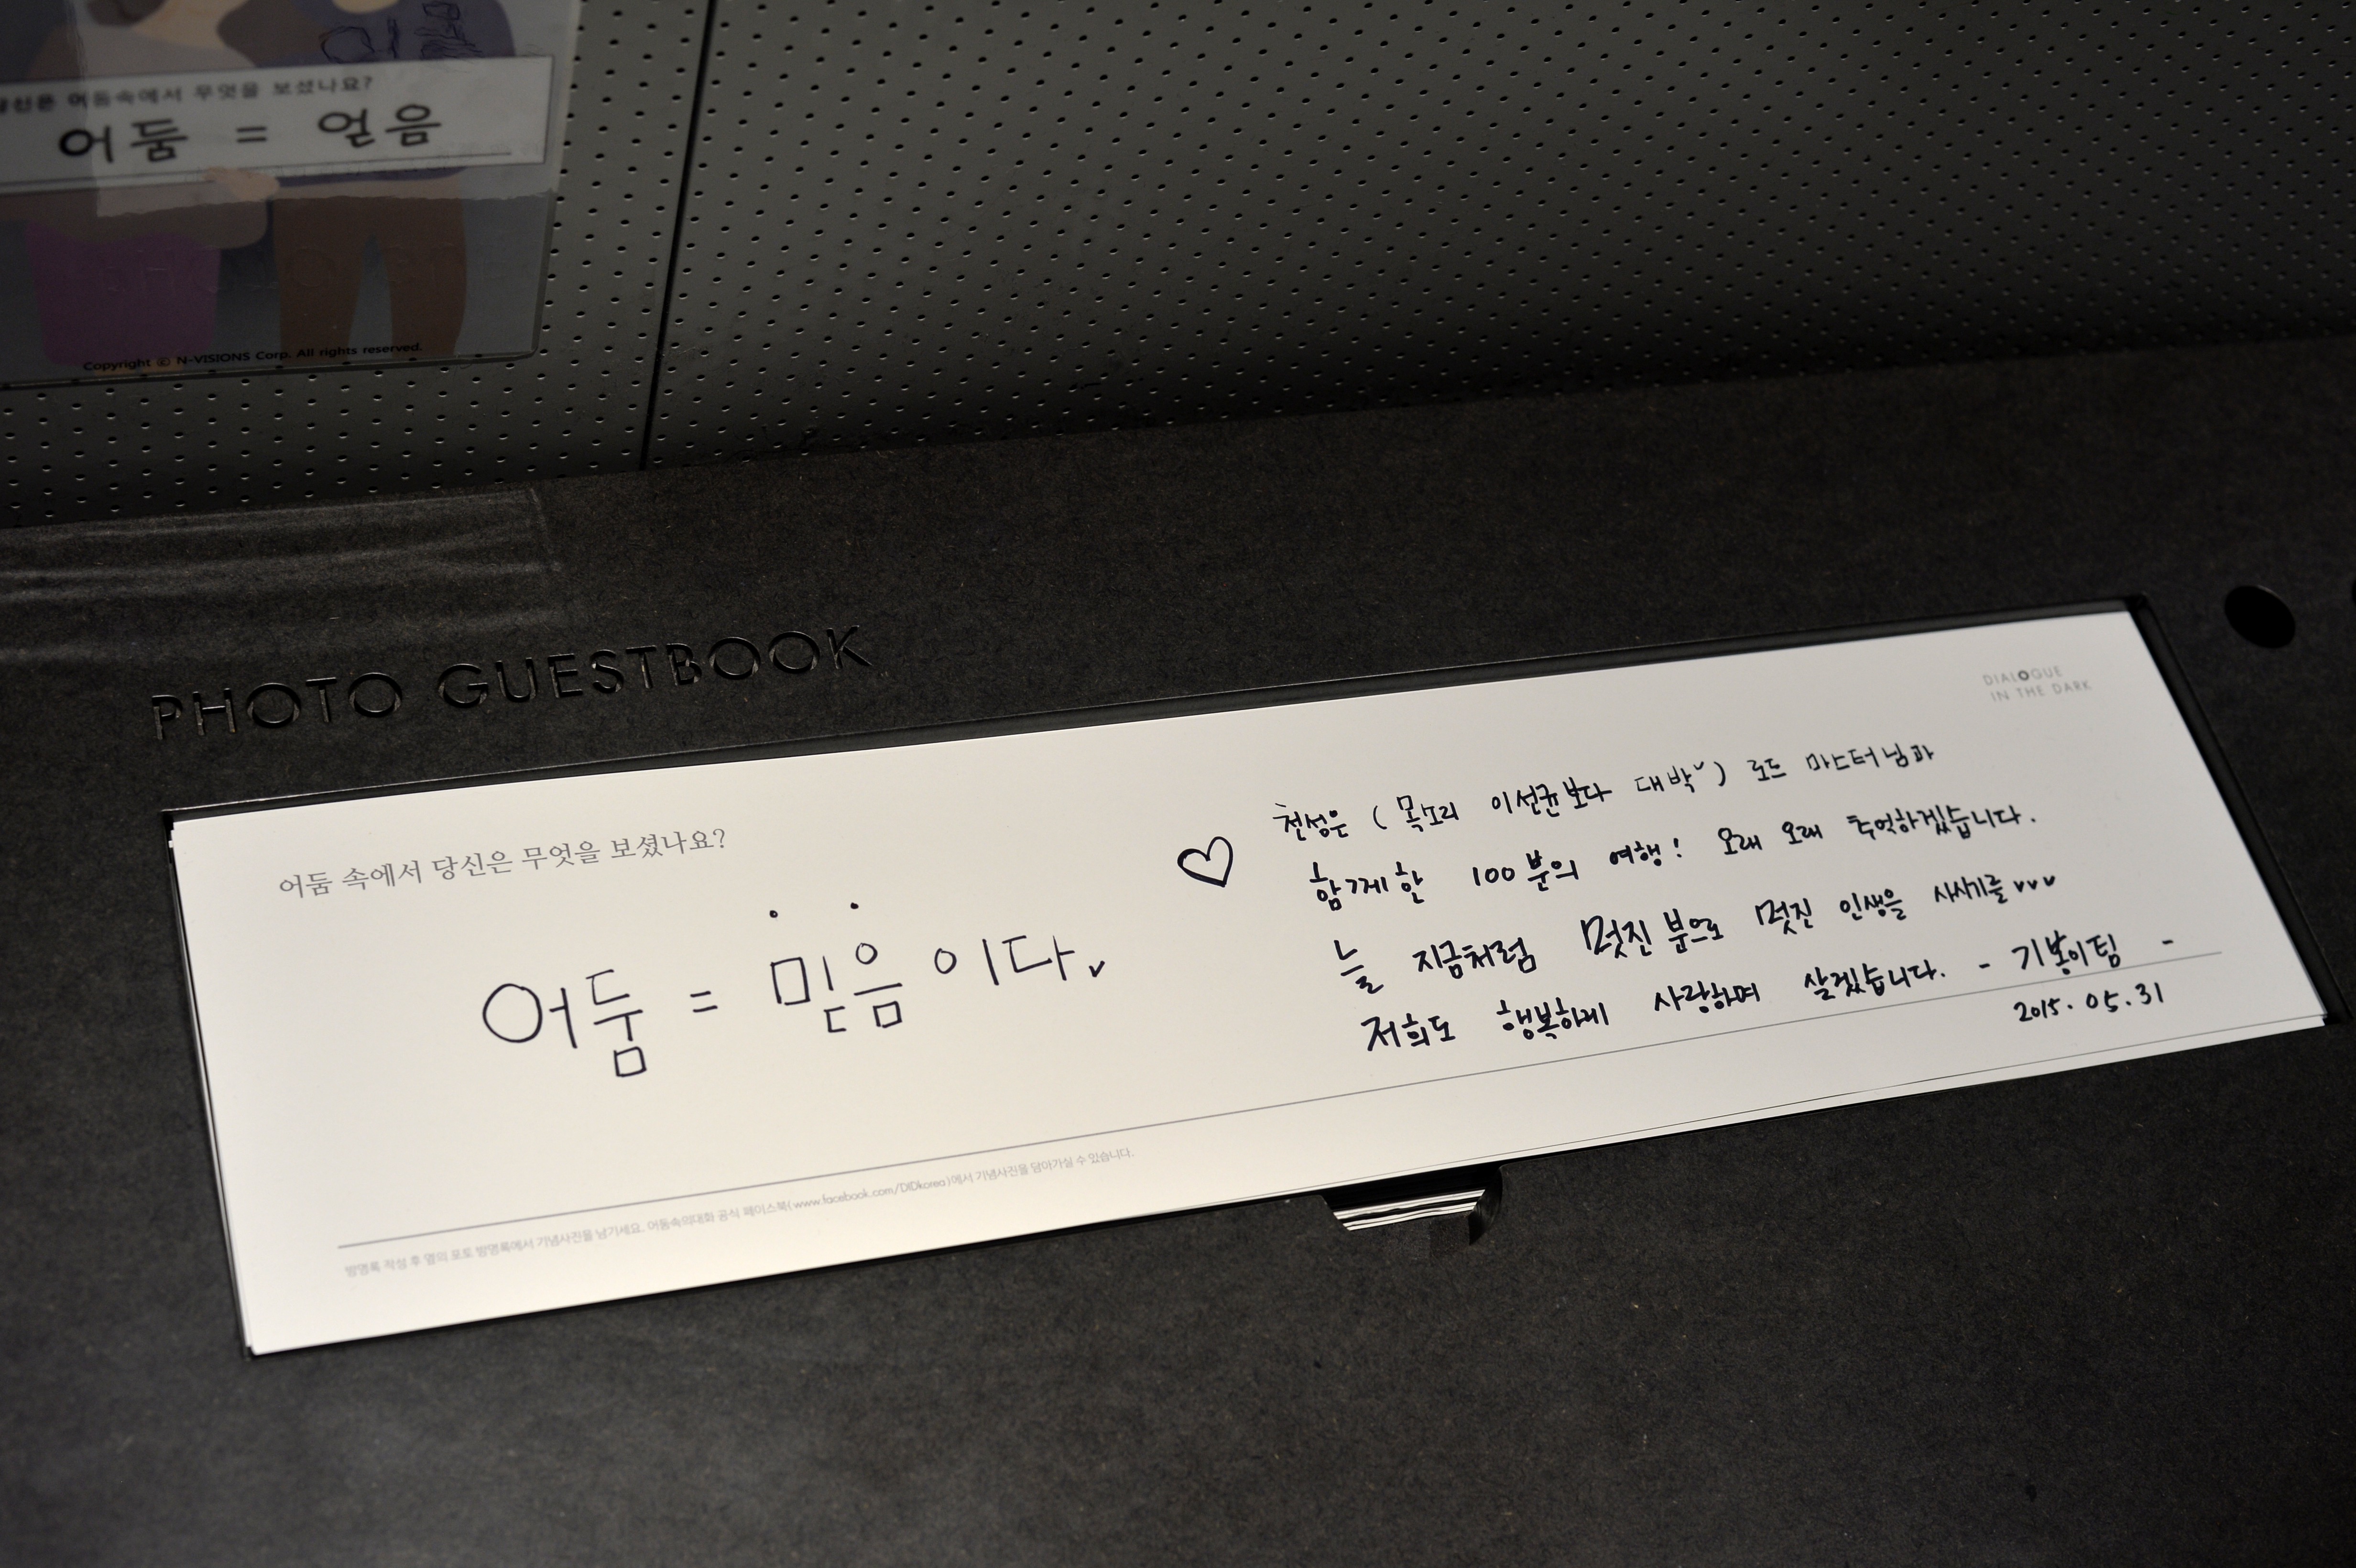 어둠속에서 무엇을 보셨나요?
어둠 = 얻음
Copyright © N-VISIONS Corp. All rights reserved.
PHOTO GUESTBOOK
DIALOGUE
IN THE DARK
어둠 속에서 당신은 무엇을 보셨나요?
어둠 = 믿음이다.
천성은 ( 목소리 이선균보다 대박 ) 로드 마스터님과
함께한 100분의 여행! 오래 오래 추억하겠습니다.
늘 지금처럼 멋진 분으로 멋진 인생을 사시기를
저희도 행복하게 사랑하며 살겠습니다. - 기봉이팀 -
2015. 05. 31
방명록 작성 후 옆의 포토 방명록에서 기념사진을 남기세요. 어둠속의대화 공식 페이스북(www.facebook.com/DIDkorea)에서 기념사진을 담아가실 수 있습니다.